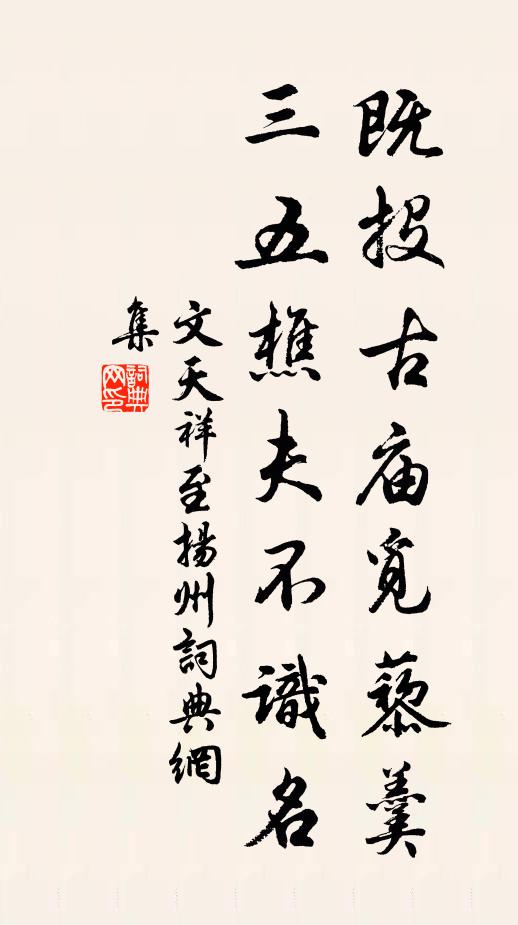 既投古庙觅藜羹
三五樵夫不識名
文天祥至揚州詞典網
集
詞典
网印